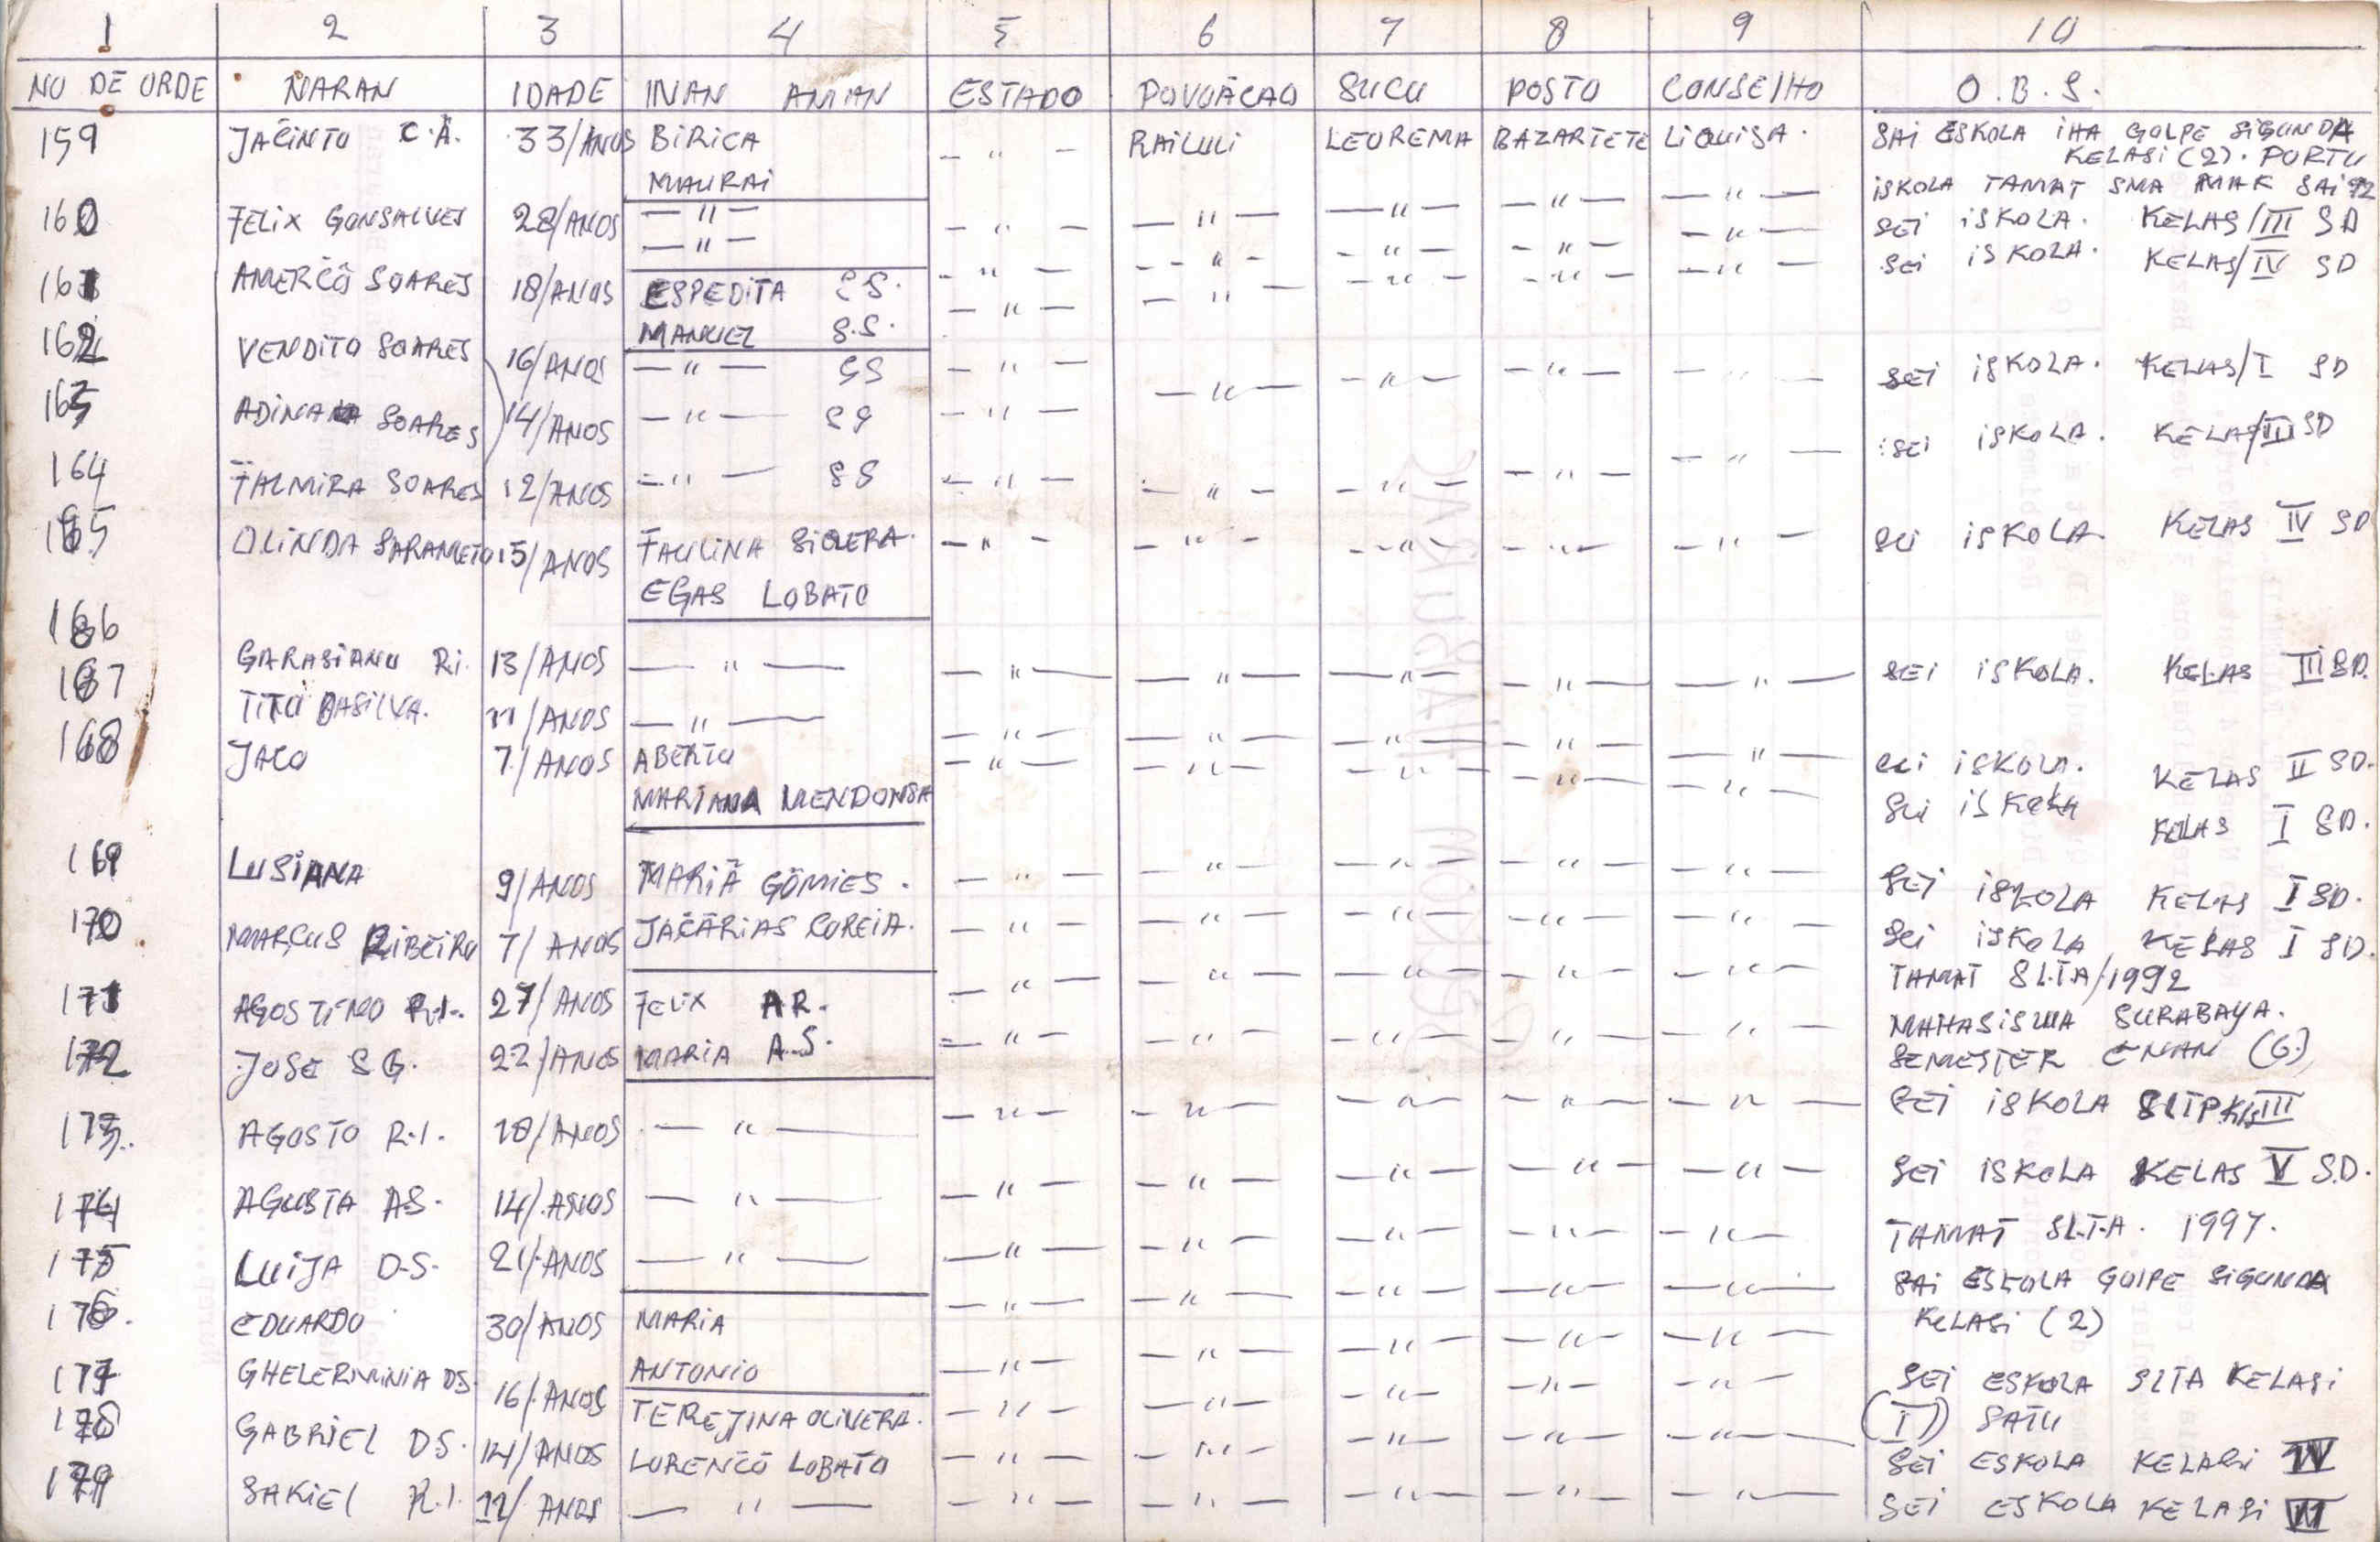 1 2 3 4 5 6 7 8 9 10
NO DE ORDE NARAN IDADE INAN AMAN ESTADO POVOÃCAO SUCU POSTO CONSELHO O.B.S.
159 JACINTO C.A. 33/ANOS BIRICA — " — RAILULI LEOREMA BAZARTETE LIQUISA. SAI ESKOLA IHA GOLPE SIGUNDA
MAURAI KELASI (2). PORTU
ISKOLA TAMAT SMA MAK SAI 92
160 FELIX GONSALVES 28/ANOS — " — — " — — " — — " — — " — — " — SEI ISKOLA. KELAS/III SD
— " — — " — — " — — " — — " — SEI ISKOLA. KELAS/IV SD
161 AMERĆÕ SOARES 18/ANOS ESPEDITA S.S. — " — — " — — " — — " — — " —
162 VENDITO SOARES MANUEL S.S. — " —
16/ANOS — " — SS — " — — " — — " — — " — — " — SEI ISKOLA. KELAS/I SD
163 ADINA SOARES 14/ANOS — " — SS — " — — " — SEI ISKOLA. KELAS/III SD
164 FALMIRA SOARES 12/ANOS — " — SS — " — — " — — " — — " —
165 OLINDA SARAMETO 15/ANOS FAULINA SIQUERA. — " — — " — — " — — " — — " — SEI ISKOLA. KELAS IV SD
EGAS LOBATO
166 GARASIANO R.I. 13/ANOS — " — — " — — " — — " — — " — — " — SEI ISKOLA. KELAS III SD.
167 TITO DASILVA. 11/ANOS — " — — " — — " — — " — — " — — " — SEI ISKOLA. KELAS II SD.
168 JACO 7/ANOS ABERTO — " — — " — — " — — " — — " — SEI ISKOLA KELAS I SD.
MARIANA MENDONSA
169 LUSIANA 9/ANOS MARIÃ GÕMES. — " — — " — — " — — " — — " — SEI ISKOLA KELAS I SD.
170 MARCUS RIBEIRO 7/ANOS JACÃRIAS COREIA. — " — — " — — " — — " — — " — SEI ISKOLA KELAS I SD.
171 AGOSTINO R.I. 27/ANOS FELIX A.R. — " — — " — — " — — " — — " — TAMAT SLTA/1992
MAHASISWA SURABAYA.
172 JOSE S G. 22/ANOS MARIA A.S. — " — — " — — " — — " — — " — SEMESTER ENAM (6)
173. AGOSTO R.I. 18/ANOS — " — — " — — " — — " — — " — — " — SEI ISKOLA SLTP KLS III
174 AGUSTA A.S. 14/ANOS — " — — " — — " — — " — — " — — " — SEI ISKOLA KELAS V S.D.
175 LUIJA D.S. 21/ANOS — " — — " — — " — — " — — " — — " — TAMAT SLTA. 1997.
176. EDUARDO 30/ANOS MARIA — " — — " — — " — — " — — " — SAI ESKOLA GOLPE SIGUNDA
KELASI (2)
177 GHELERMINIA DS. 16/ANOS ANTONIO — " — — " — — " — — " — — " — SEI ESKOLA SLTA KELASI
TEREJINA OLIVERA. — " — — " — — " — — " — — " — (I) SATU
178 GABRIEL D.S. 14/ANOS LORENĆÕ LOBATO — " — — " — — " — — " — — " — SEI ESKOLA KELASI IV
179 SAKIEL R.I. 12/ANOS — " — — " — — " — — " — — " — — " — SEI ESKOLA KELASI